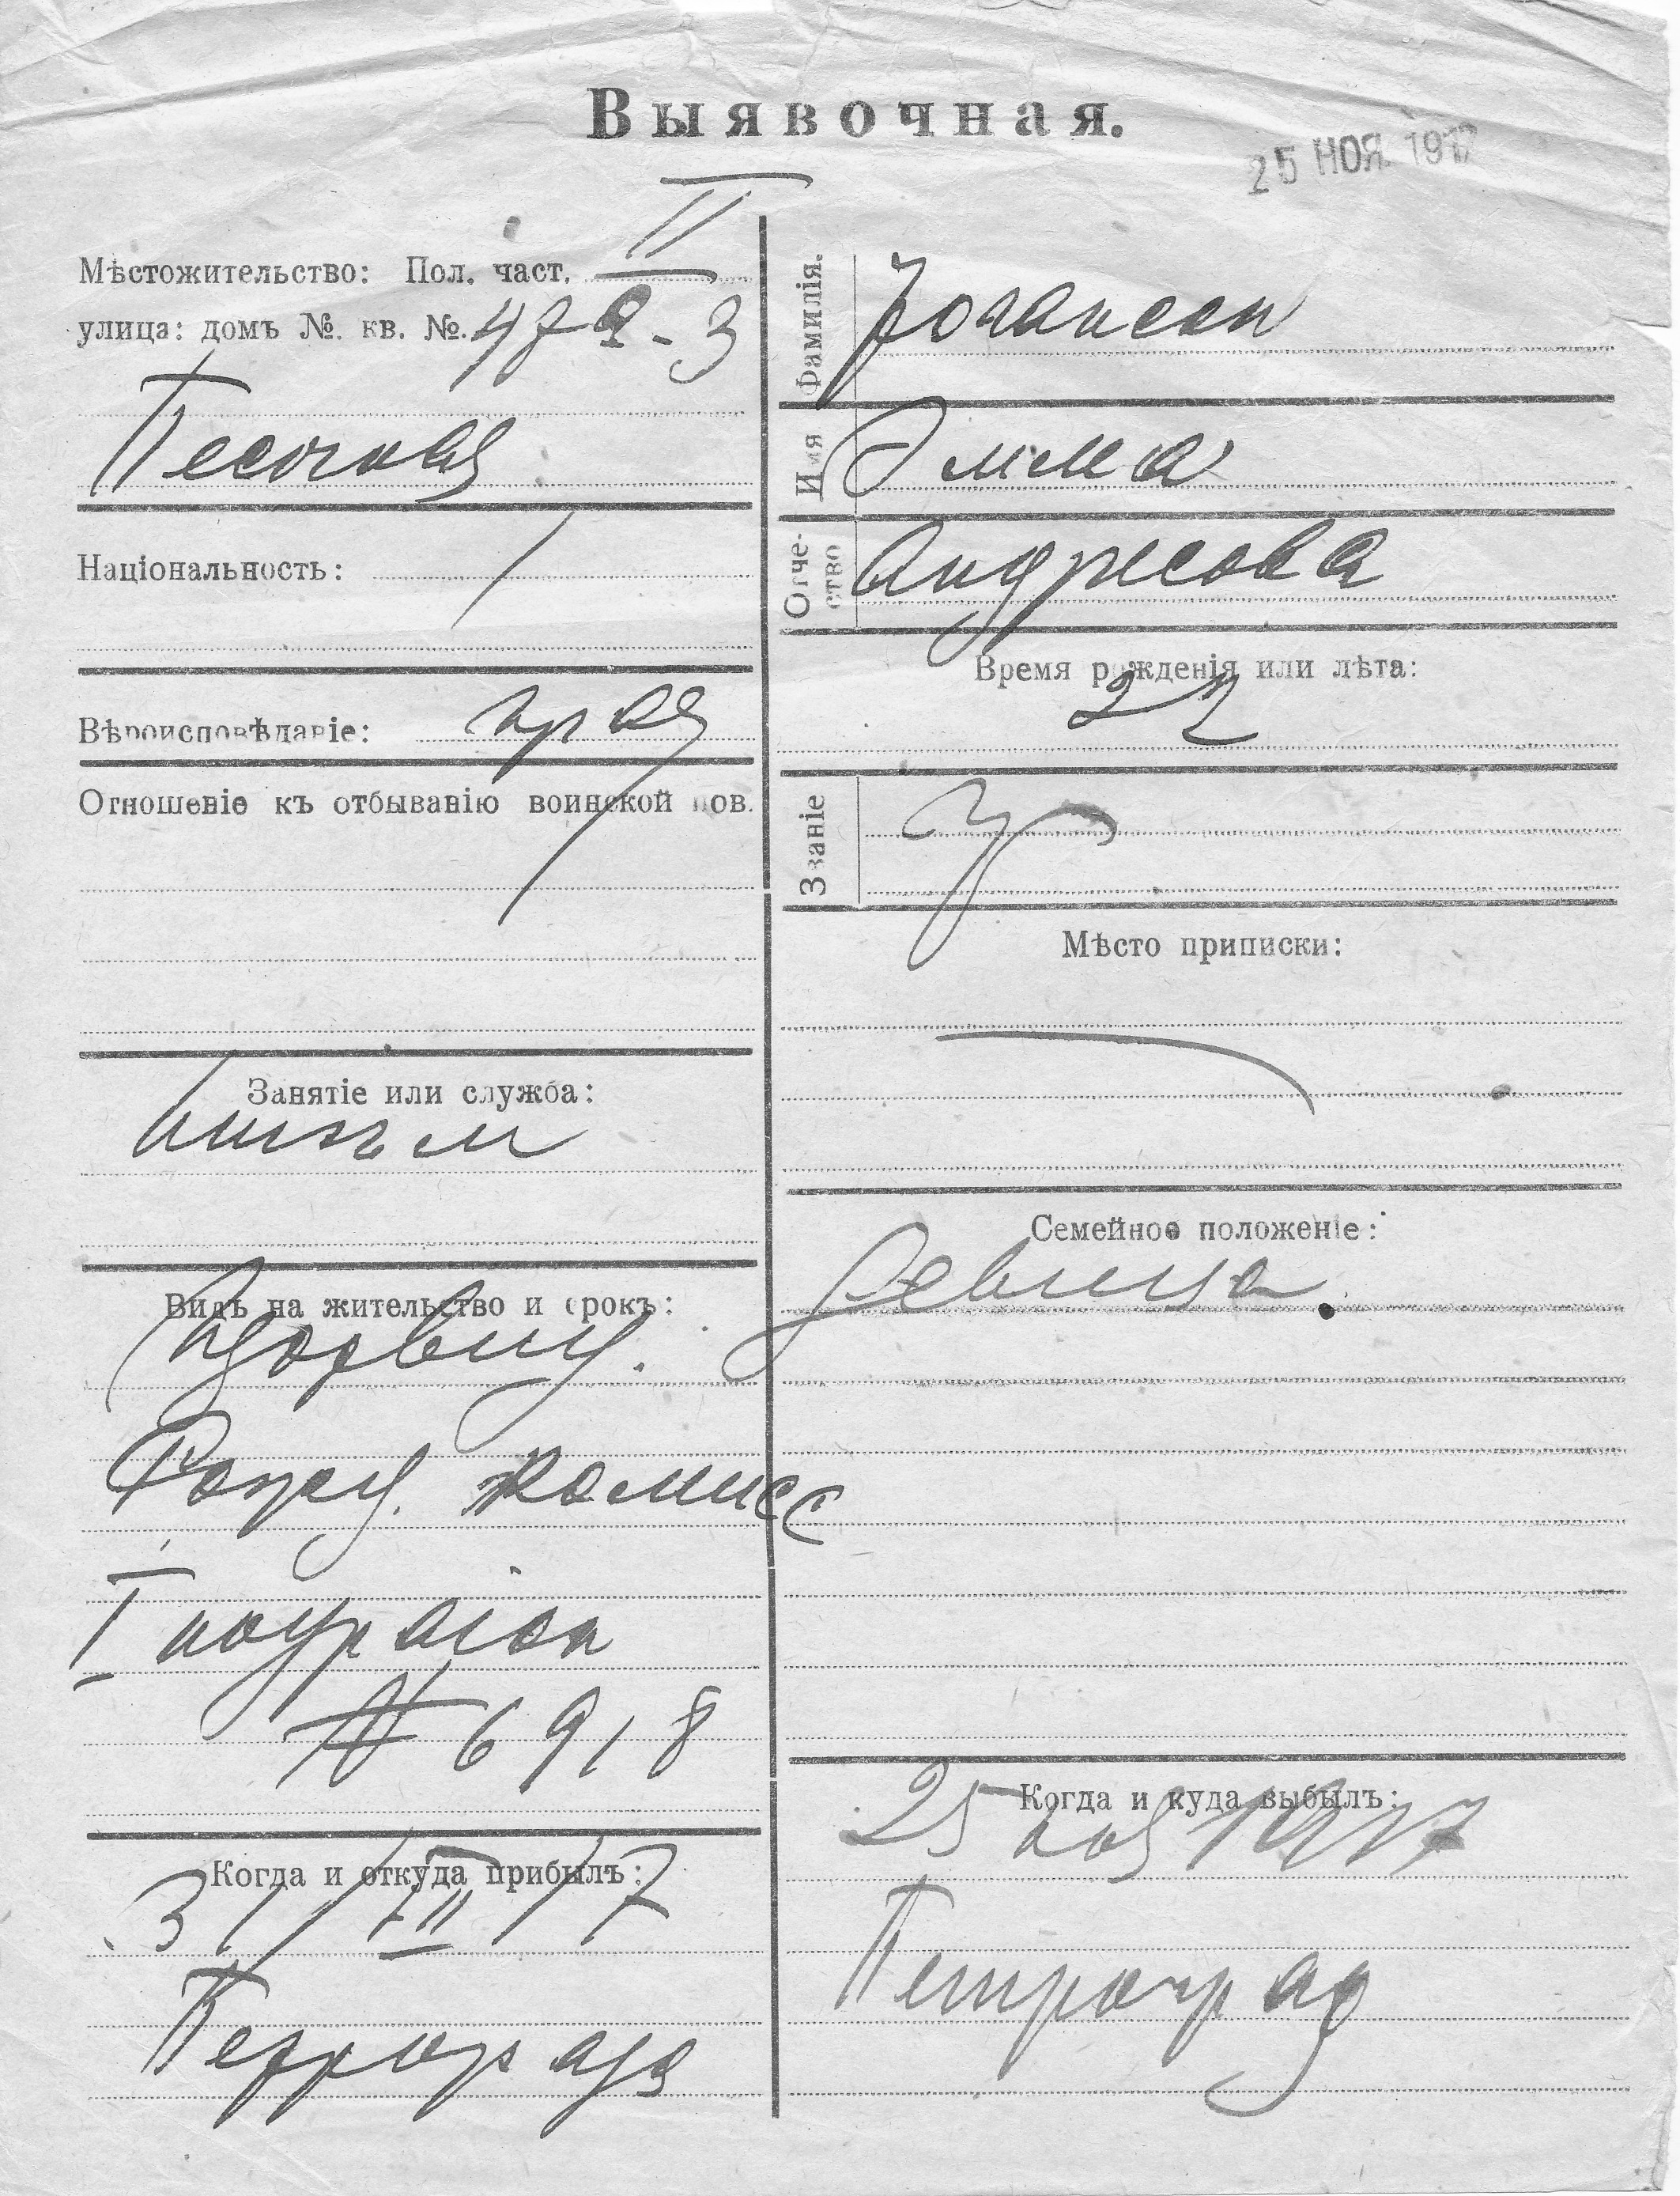 Выявочная.
25 НОЯ. 1917
Мѣстожительство: Пол. част. II
улица: домъ №. кв. №. 47а-3
Песочная
Національность:
Вѣроисповѣданіе: прав
Отношеніе къ отбыванію воинской пов.
Занятіе или служба:
Видъ на жительство и срокъ:
Удоз выд.
Город. комисс
I подрайон
№ 6918
Когда и откуда прибылъ:
31/VII 17
Петрограда
Фамилія. Іогансон
Имя Эмма
Отчество Андресова
Время рожденія или лѣта:
22
Званіе
Мѣсто приписки:
Семейное положеніе:
девица.
Когда и куда выбылъ:
25 ноя 1917
Петроград